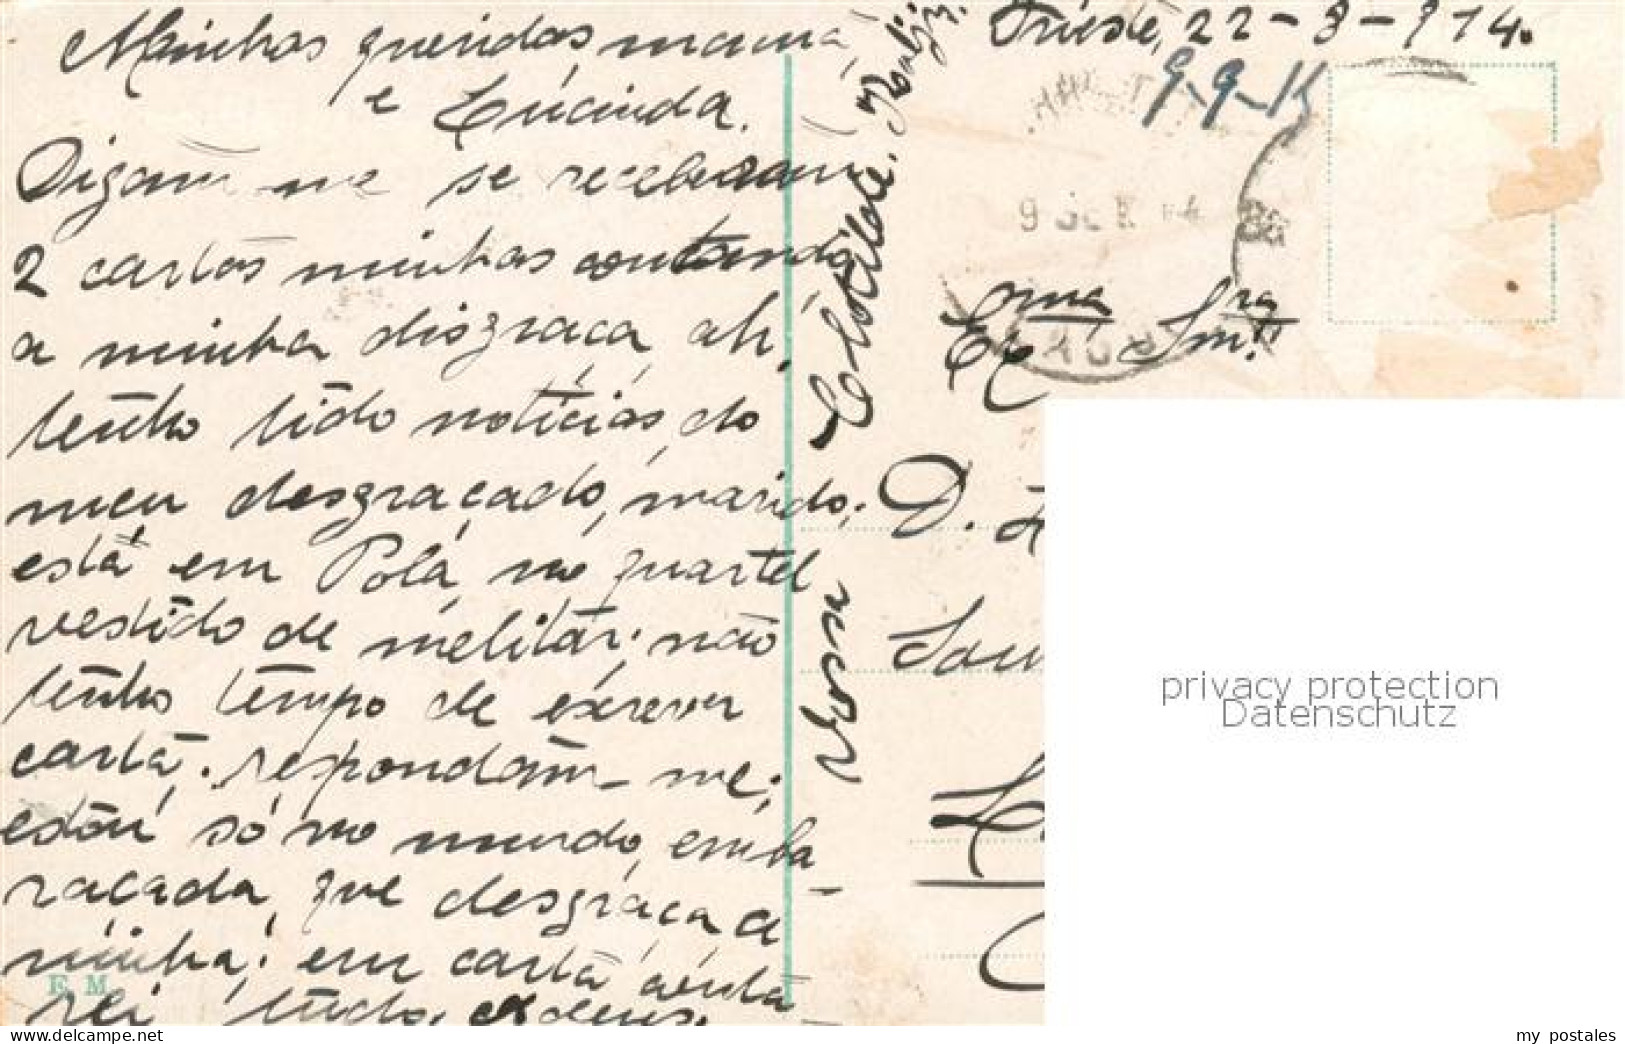 Trieste, 22-8-914.
9-9-14
Minhas queridas, mamã,
e Lucinda.
Digam-me se receberam
2 cartas minhas contando
a minha disgraça, ah,
tenho lido noticias, do
meu desgraçado, marido;
está em Pola, no quartel
vestido de melitar; não
tenho tempo de escrever
carta. respondam-me;
estou só no mundo, emba-
raçada, que desgraça a
minha; em carta conta-
rei tudo, Adeus,
Vossa Clotilde.
Exma Snra
D.
E M
privacy protection
Datenschutz
my postales